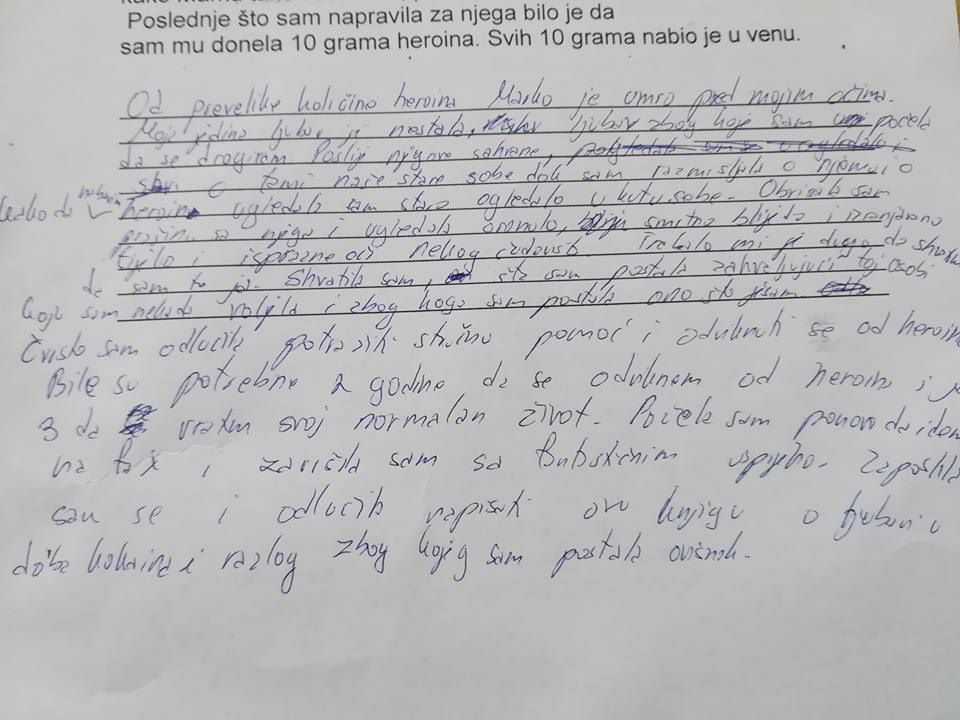 Poslednje što sam napravila za njega bilo je da
sam mu donela 10 grama heroina. Svih 10 grama nabio je u venu.
Od prevelike količine heroina Marko je umro pred mojim očima.
Moja jedina ljubav je nestala, ljubav zbog koje sam počela
da se drogiram. Poslije njegove sahrane,
o temi naše stare sobe dok sam razmišljala o njemu i o
heroinu ugledala sam staro ogledalo u kutu sobe. Obrisala sam
prašinu sa njega i ugledala omrulo, smrtno blijedo i izranjavano
tijelo i isprazne oči nekog čudovišta. Trebalo mi je dugo da shvatim
da sam to ja. Shvatila sam, šta sam postala zahvaljujući toj osobi
koju sam nekada voljela i zbog koga sam postala ono što jesam.
Čvrsto sam odlučila potražiti stručnu pomoć i odviknuti se od heroina
Bile su potrebne 2 godine da se odviknem od heroina i
3 da vratim svoj normalan život. Počela sam ponovo da idem
na fax i završila sam sa uspjeho. Zaposlila
sam se i odlučila napisati ovu knjigu o ljubavi u
doba kokaina i razlog zbog kojeg sam postala ovisnik.